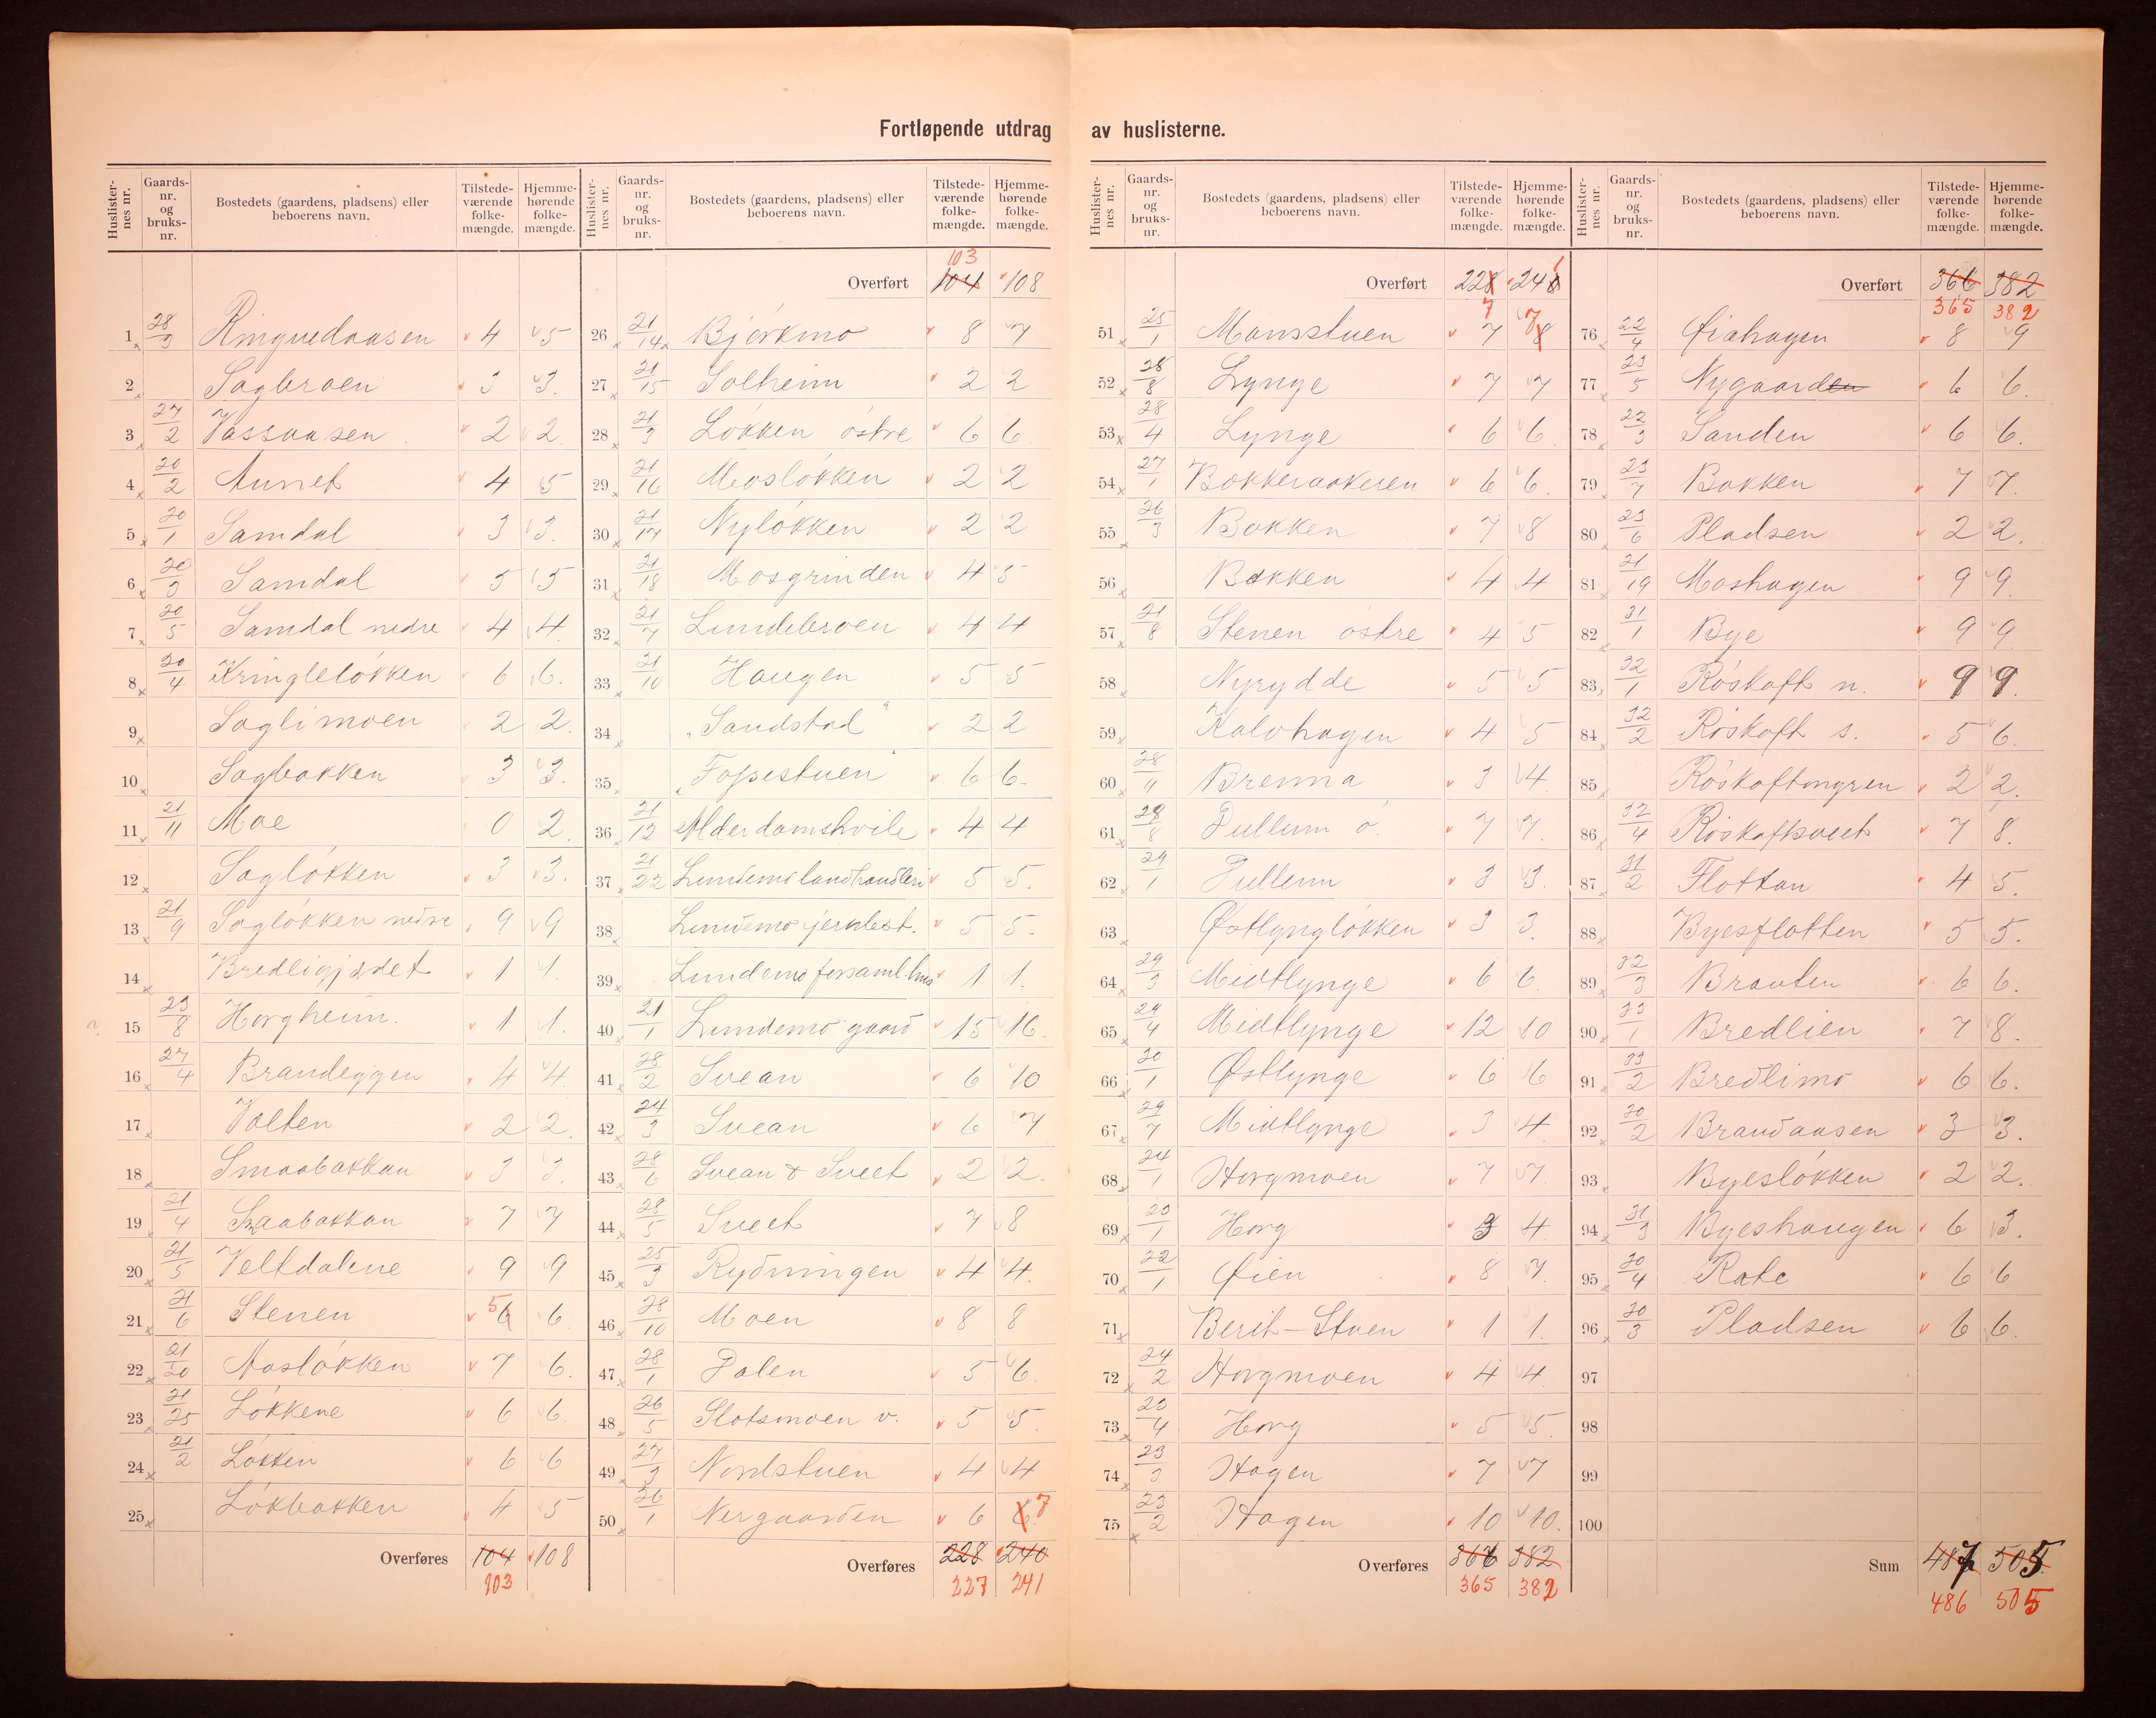 Fortløpende utdrag av huslisterne.
Huslister-nes nr. Gaards-nr. og bruks-nr. Bostedets (gaardens, pladsens) eller beboerens navn. Tilstede-værende folke-mængde. Hjemme-hørende folke-mængde.
1 28/3 Ringvedaasen 4 5
2 Sagbraen 3 3.
3 27/2 Vassaasen 2 2
4 20/2 Aunet 4 5
5 20/1 Samdal 3 3.
6 20/3 Samdal 5 5
7 20/5 Samdal nedre 4 4.
8 20/4 Kringleløkken 6 6.
9 Saglimoen 2 2.
10 Sagbakken 3 3.
11 21/11 Moe 0 2
12 Sagløkken 3 3.
13 21/9 Sagløkken nedre 9 9
14 Bredligjærdet 1 1.
15 23/8 Horgheim. 1 1.
16 27/4 Brandeggen 4 4.
17 Valten 2 2.
18 Smaabakkan 3 3.
19 21/4 Smaabakkan 7 7
20 21/5 Veltdalene 9 9
21 21/6 Stenen 6 5 6
22 21/20 Aasløkken 7 6.
23 21/25 Løkkene 6 6.
24 21/2 Løkken 6 6
25 Løkbakken 4 5
Overføres 104 108
103
Huslister-nes nr. Gaards-nr. og bruks-nr. Bostedets (gaardens, pladsens) eller beboerens navn. Tilstede-værende folke-mængde. Hjemme-hørende folke-mængde.
103
Overført 104 108
26 21/14 Bjørkmo 8 7
27 21/15 Solheim 2 2
28 21/3 Løkken østre 6 6
29 21/16 Mosløkken 2 2
30 21/17 Nyløkken 2 2
31 21/18 Mosgrinden 4 5
32 21/7 Lundebroen 4 4
33 21/10 Haugen 5 5
34 „Sandstad" 2 2
35 „Fopestuen" 6 6.
36 21/12 Alderdomshvile 4 4
37 21/22 Lundemo landhandleri 5 5.
38 Lundemo jernbest. 5 5.
39 Lundemo forsaml.hus 1 1.
40 21/1 Lundemo gaard 15 16.
41 28/2 Svean 6 10
42 24/3 Svean 6 7
43 28/6 Svean & Sveet 2 2.
44 28/5 Sveet 7 8
45 25/3 Rydningen 4 4.
46 28/10 Moen 8 8
47 28/1 Dalen 5 6.
48 26/5 Slotsmoen v. 5 5.
49 27/3 Nordstuen 4 4
50 26/1 Nergaarden 6 6. 7
Overføres 228 240
227 241
Huslister-nes nr. Gaards-nr. og bruks-nr. Bostedets (gaardens, pladsens) eller beboerens navn. Tilstede-værende folke-mængde. Hjemme-hørende folke-mængde.
Overført 228 7 240 1
51 25/1 Mansstuen 7 8 7
52 28/8 Lynge 7 7
53 28/4 Lynge 6 6.
54 27/1 Bakkeraakeren 6 6.
55 26/3 Bakken 7 8
56 Bakken 4 4
57 21/8 Stenen østre 4 5
58 Nyrydde 5 5
59 Kalvhagen 4 5
60 28/11 Brenna 3 4.
61 29/8 Pullum ø. 7 7.
62 29/1 Pullum 3 3.
63 Østlyngløkken 3 3.
64 29/3 Midtlynge 6 6.
65 29/4 Midtlynge 12 10
66 30/1 Østlynge 6 6
67 29/7 Midtlynge 3 4.
68 24/1 Horgmoen 7 7.
69 23/1 Horg 3 4.
70 22/1 Øien 8 7.
71 Berit-Stuen 1 1.
72 24/2 Horgmoen 4 4.
73 23/4 Horg 5 5.
74 23/3 Hagen 7 7
75 23/2 Hagen 10 10.
Overføres 366 382
365 382
Huslister-nes nr. Gaards-nr. og bruks-nr. Bostedets (gaardens, pladsens) eller beboerens navn. Tilstede-værende folke-mængde. Hjemme-hørende folke-mængde.
Overført 366 382
365 382
76 22/4 Øiahagen 8 9
77 23/5 Nygaarden 6 6.
78 22/3 Sanden 6 6.
79 23/7 Bakken 7 7.
80 23/6 Pladsen 2 2.
81 21/19 Moshagen 9 9.
82 31/1 Bye 9 9.
83 32/1 Røskaft n. 9 9.
84 32/2 Røskaft s. 5 6.
85 Røskaftmyren 2 2.
86 32/4 Røskaftsveet 7 8.
87 31/2 Flottan 4 5.
88 Byesflotten 5 5.
89 32/3 Brauten 6 6.
90 33/1 Bredlien 7 8.
91 33/2 Bredlimo 6 6.
92 30/2 Brandaasen 3 3.
93 Byesløkken 2 2.
94 31/3 Byeshaugen 6 3.
95 30/4 Rate 6 6
96 30/3 Pladsen 6 6.
97
98
99
100
Sum 487 505
486 505